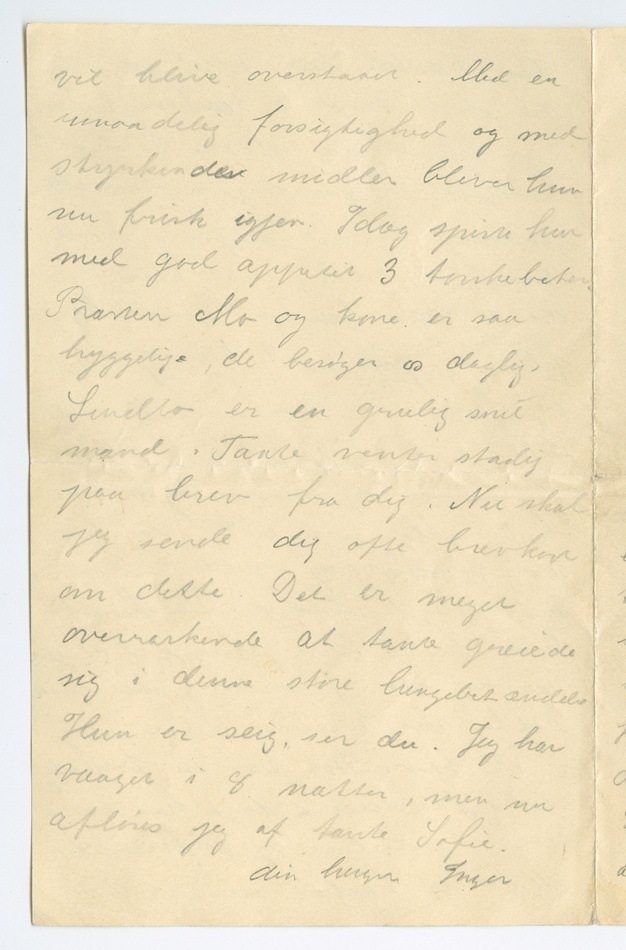 vil blive overstaaet. Med en
umaadelig forsigtighed og med
styrkende midler bliver hun
nu frisk igjen. Idag spiste hun
med god appetit 3 torskebeter.
Præsten Mo og kone er saa
hyggelige, de besøger os daglig.
er en grulig snil
mand. Tante venter stadig
paa brev fra dig. Nu skal
jeg sende dig ofte brevkort
om dette. Det er meget
overraskende at tante greiede
sig i denne store lungebetændelse
Hun er seig, ser du. Jeg har
vaaget i 8 nætter, men nu
afløses jeg af tante Sofie.
din Inger